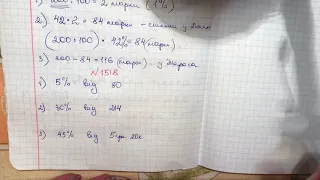 1) 200 : 100 = 2 марки (1%)
2) 42 · 2 = 84 марки - у
(200 : 100) · 42% = 84 (марки)
3) 200 - 84 = 116 (марок) - у Тараса
N 1518
1) 5% від 80
2) 30% від 214
3) 45% від 5грн 20к